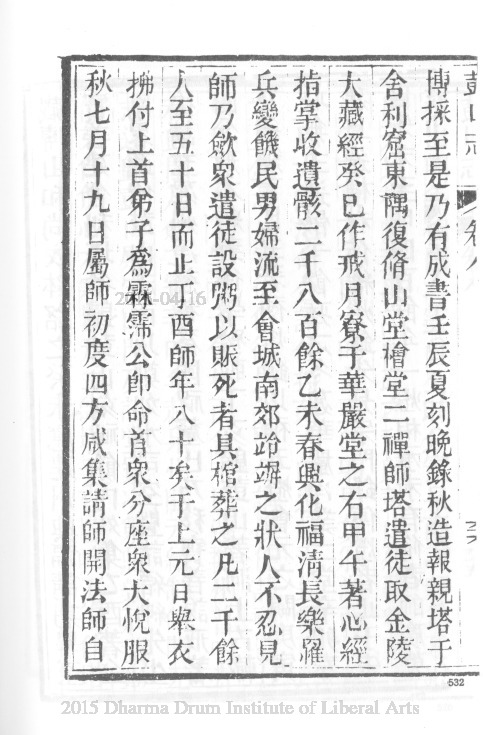 鼓山志
卷八
博採至是乃有成書壬辰夏刻晚錄秋造報親塔于
舍利窟東隅復脩山堂檜堂二禪師塔遣徒取金陵
大藏經癸巳作戒月寮于華嚴堂之右甲午著心經
指掌收遺骸二千八百餘乙未春興化福清長樂罹
兵變饑民男婦流至會城南郊跉竮之狀人不忍見
師乃歛衆遣徒設粥以賑死者具棺葬之凡二千餘
人至五十日而止丁酉師年八十矣于上元日舉衣
拂付上首弟子爲霖霈公卽命首衆分座衆大悅服
秋七月十九日屬師初度四方咸集請師開法師自
532
2015 Dharma Drum Institute of Liberal Arts